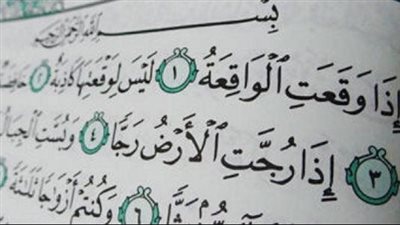 بِسْمِ ٱللَّهِ ٱلرَّحْمَٰنِ ٱلرَّحِيمِ
إِذَا وَقَعَتِ ٱلْوَاقِعَةُ ١ لَيْسَ لِوَقْعَتِهَا كَاذِبَةٌ ٢
٣ إِذَا رُجَّتِ ٱلْأَرْضُ رَجًّا ٤ وَبُسَّتِ ٱلْجِبَالُ
٦ وَكُنتُمْ أَزْوَاجًا ثَلَٰثَةً